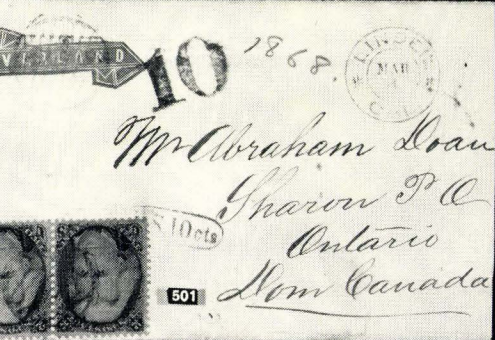 VERLAND
10
1868.
LINDEN
MAR
CAL
Mr Abraham Doan
Sharon P O
Ontario
Dom Canada
10 cts
501